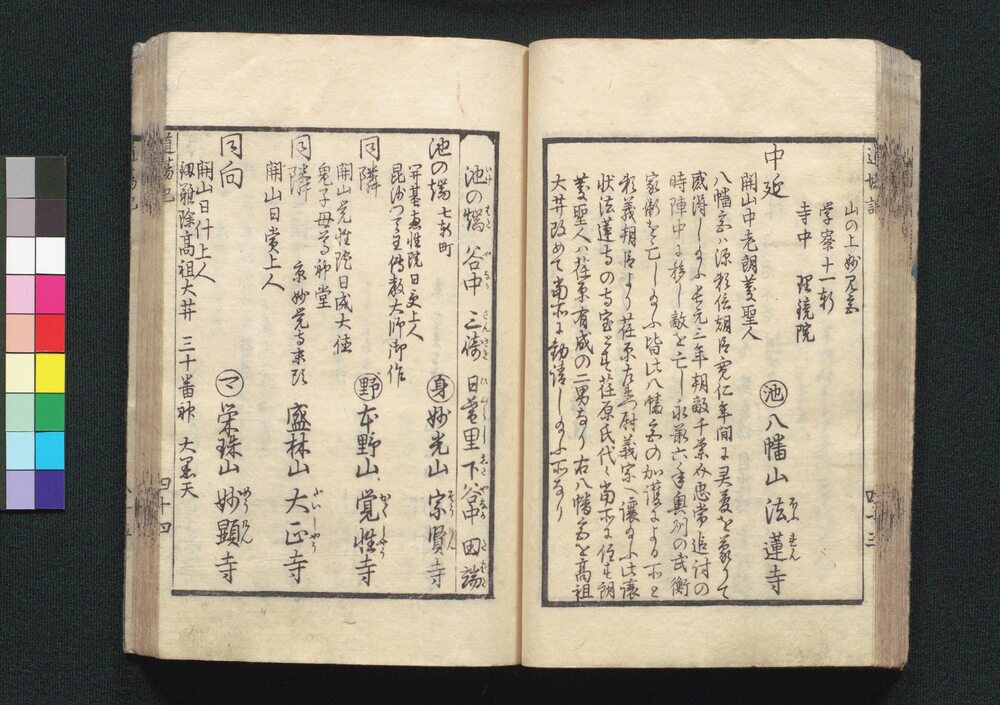 山の上妙見宮
学寮十一軒
寺中 理鏡院
中延 池 八幡山 法蓮寺
開山中老朗慶聖人
八幡宮ハ源頼信朝臣寛仁年間に霊夢を蒙りて
感得し給ふ長元二年朝敵千葉介忠常追討の
時陣中に移し敵を亡し永承六年奥州の武衡
家衡を亡し給ふ皆此八幡宮の加護による所と
頼義朝臣より荏原左兵衛尉義宗へ譲給ふ此譲
状法蓮寺の寺宝とす荏原氏代々当所に住す朗
慶聖人ハ荏原有成の二男なり右八幡宮を高祖
大井改めて当所に勧請し給ふ所なり
池の端 谷中 三崎 日暮里 下谷中 田端
池の端 七軒町 身 妙光山 宗賢寺
開基恵性院日更上人
毘沙門天王傳教大師御作
同隣 野 本野山 覚性寺
開山覚性院日成大徳
鬼子母尊神堂
同隣 京妙覚寺末頭 盛林山 大正寺
開山日賞上人
同向 マ 栄珠山 妙顕寺
開山日什上人
厄難除高祖大井 三十番神 大黒天
道場記
四十四
四十三